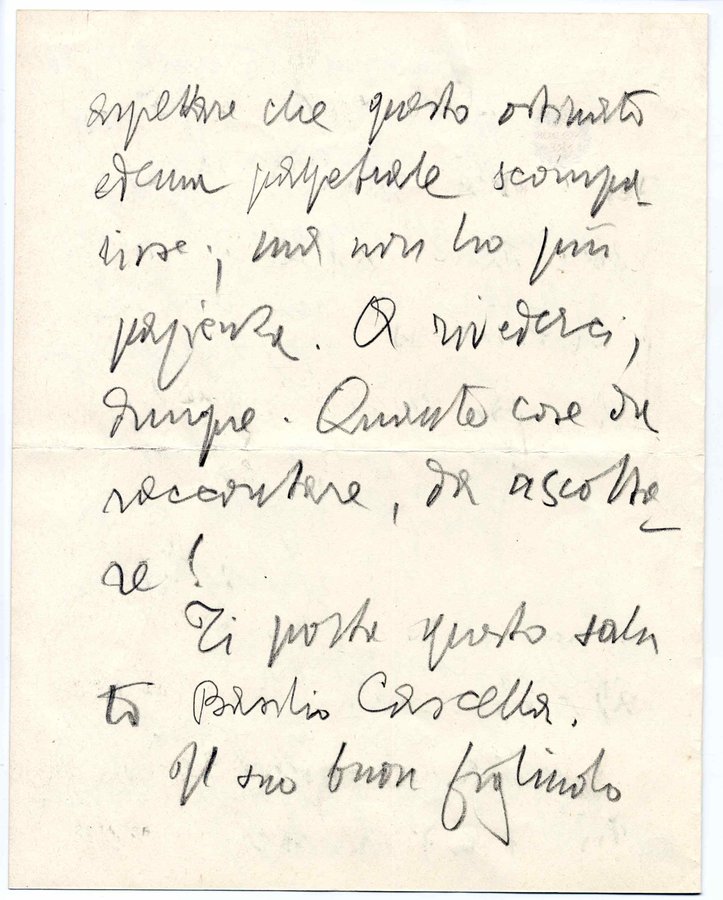 aspettare che questo ostinato
edema palpebrale scompa-
risse; ma non ho più
pazienza. A rivederci,
dunque. Quante cose da
raccontare, da ascolta-
re!
Ti porta questo salu
to Basilio Cascella.
Il suo buon figliuolo